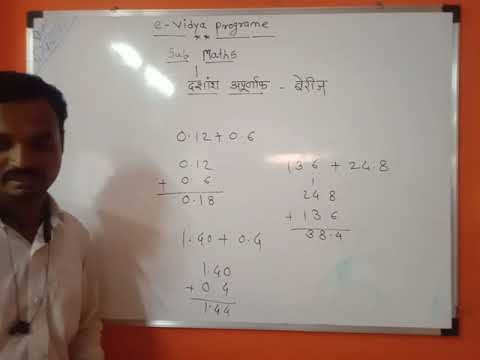 e-Vidya Programe
Sub Maths
दशांश अपूर्णांक - बेरीज
0.12 + 0.6
0.12
+ 0.6
0.18
1.40 + 0.4
1.40
+ 0 4
1.44
13 6 + 24.8
1
24 8
+ 13 6
38.4